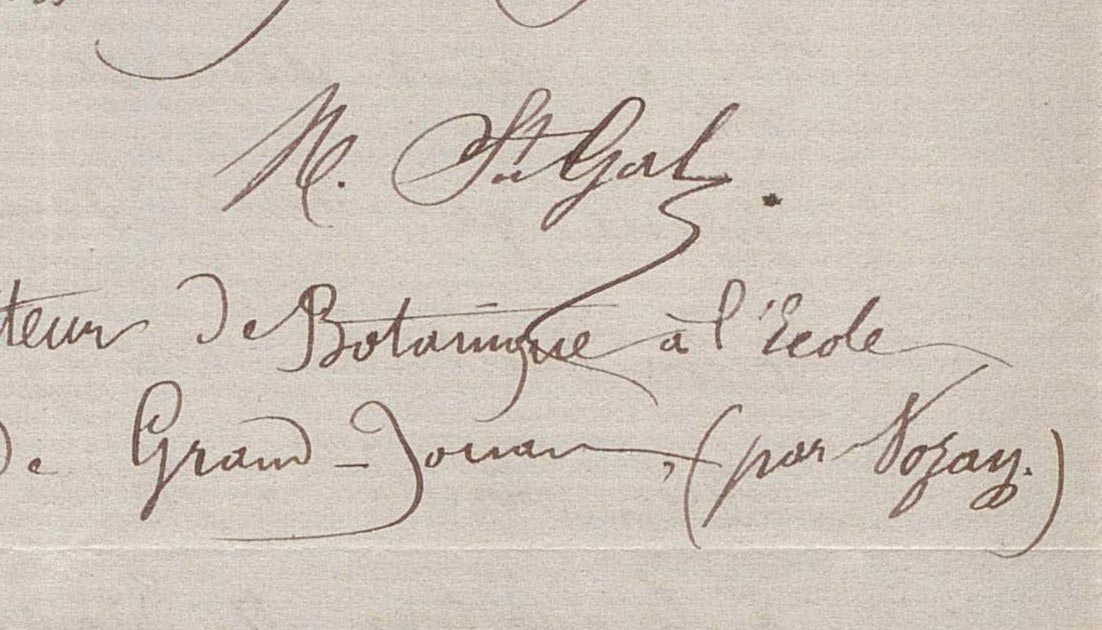 N. St Gal.
teur de Botanique à l'Ecole
de Grand-Jouan, (par Nozay.)